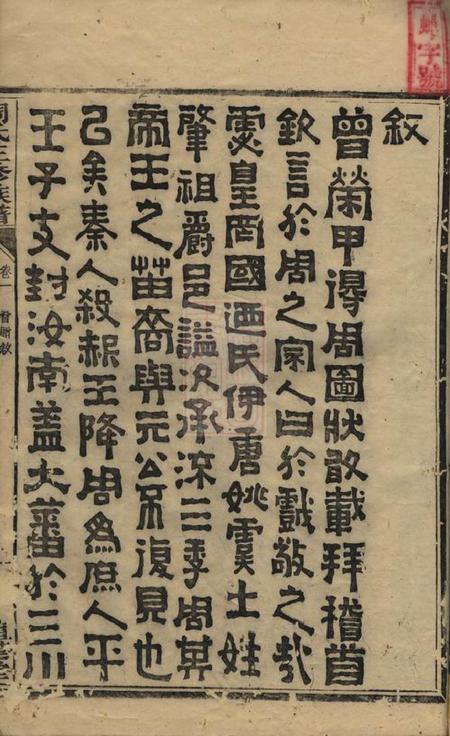 敘
曾榮甲得周圖狀敢載拜稽首
欽言於周之宗人曰於戲敬之哉
靈皇周國迺氏伊唐姚虞土姓
肇祖爵邑謚次承流三季周其
帝王之苗裔與元公不復見也
已矣秦人殺赧王降周為庶人平
王子支封汝南蓋大蕃於三川
卷一